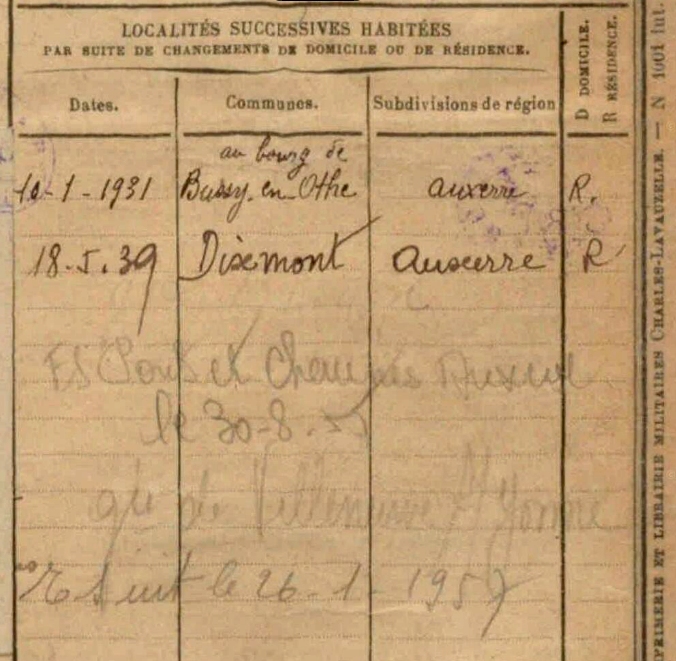 LOCALITÉS SUCCESSIVES HABITÉES
PAR SUITE DE CHANGEMENTS DE DOMICILE OU DE RÉSIDENCE.
Dates. Communes. Subdivisions de région D DOMICILE. R RÉSIDENCE.
au bourg de
10-1-1931 Bussy-en-Othe auxerre R.
18.5.39 Dixemont auxerre R
Ponts et Chaussées Auxerre
le 30-8-
de Villeneuve s/ Yonne
le 26-1-1957
IMPRIMERIE ET LIBRAIRIE MILITAIRES CHARLES-LAVAUZELLE. — N 1001 int.